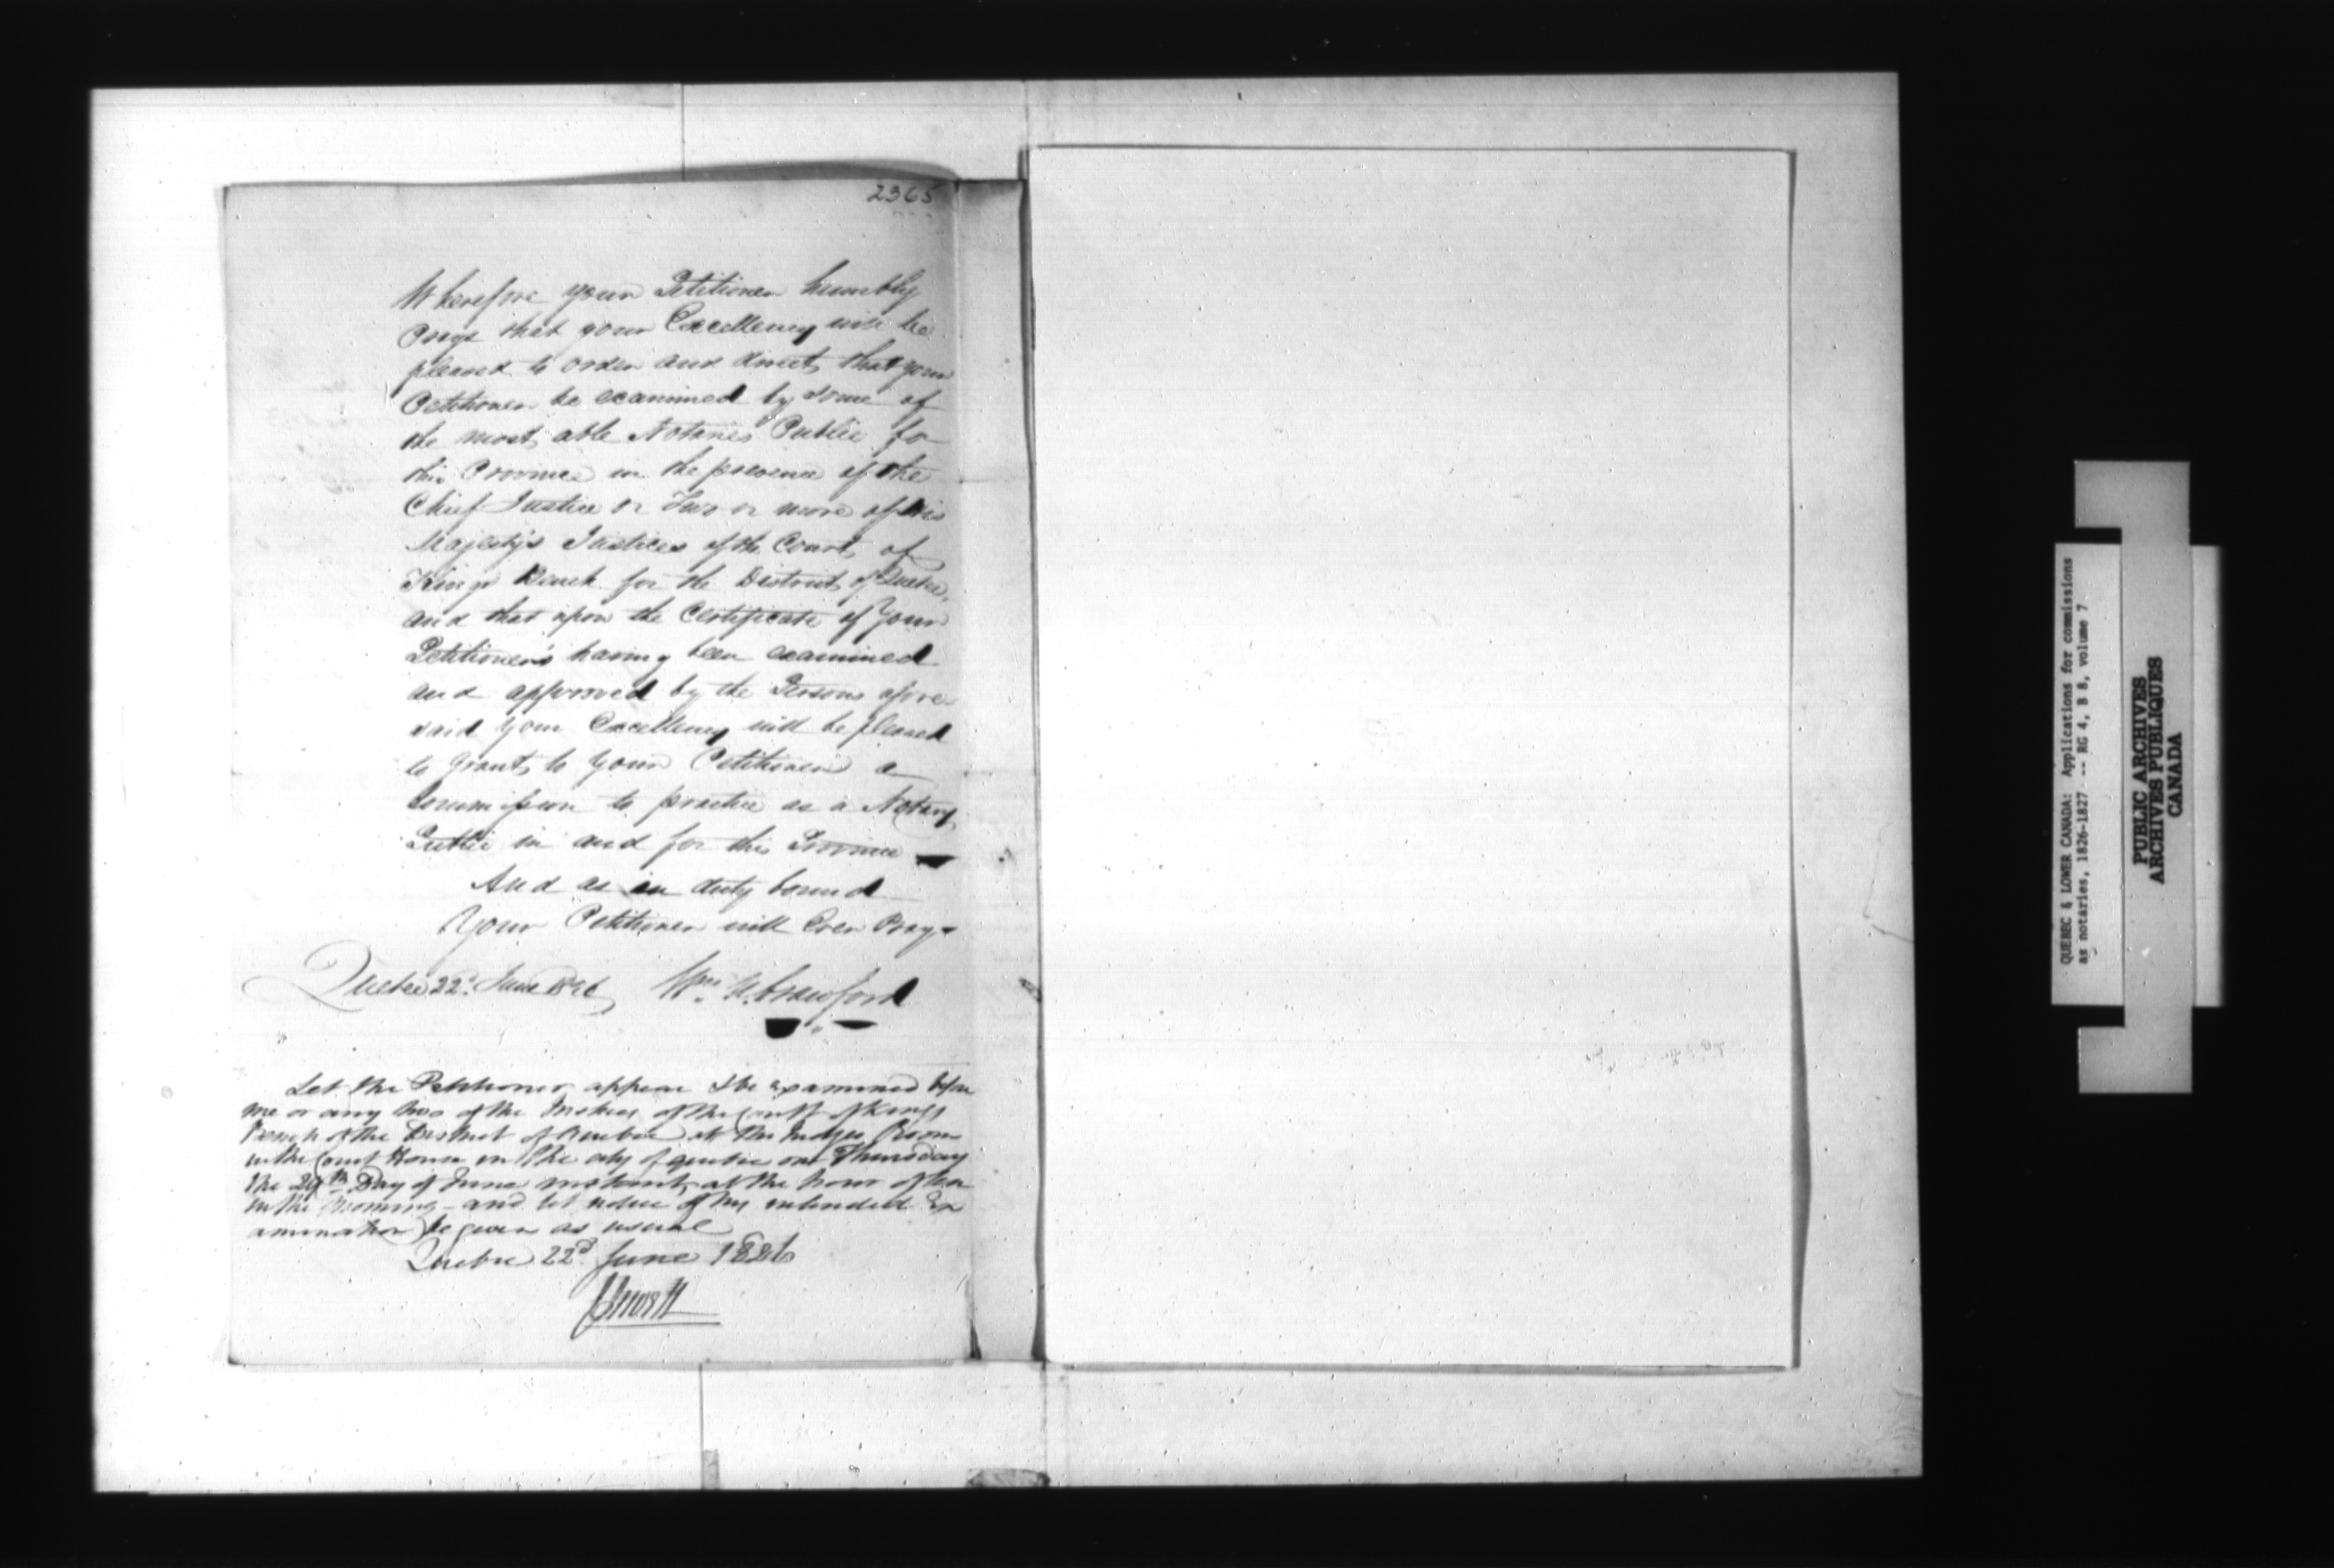 2365
Wherefore your Petitioner humbly
Prays that your Excellency will be
pleased to order and direct that your
Petitioner be examined by some of
the most able Notaries Public for
this Province in the presence of the
Chief Justice or Two or more of His
Majesty's Justices of the Court of
King's Bench for the District of Quebec,
and that upon the Certificate of Your
Petitioner's having been examined
and approved by the Persons afore-
said your Excellency will be pleased
to grant to your Petitioner a
Commission to practice as a Notary
Public in and for this Province
And as in duty bound
Your Petitioner will Ever Pray
Quebec 22d. June 1826 Wm. Crawford
Let the Petitioner appear & be examined before
me or any two of the Justices of the Court of Kings
Bench of the District of Quebec at the Judges Room
in the Court House in the city of Quebec on Thursday
the 29th Day of June instant, at the hour of ten
in the morning - and let notice of his intended Ex
amination be given as usual
Quebec 22d June 1826
QUEBEC & LOWER CANADA: Applications for commissions
as notaries, 1826-1827 -- RG 4, B 8, volume 7
PUBLIC ARCHIVES
ARCHIVES PUBLIQUES
CANADA